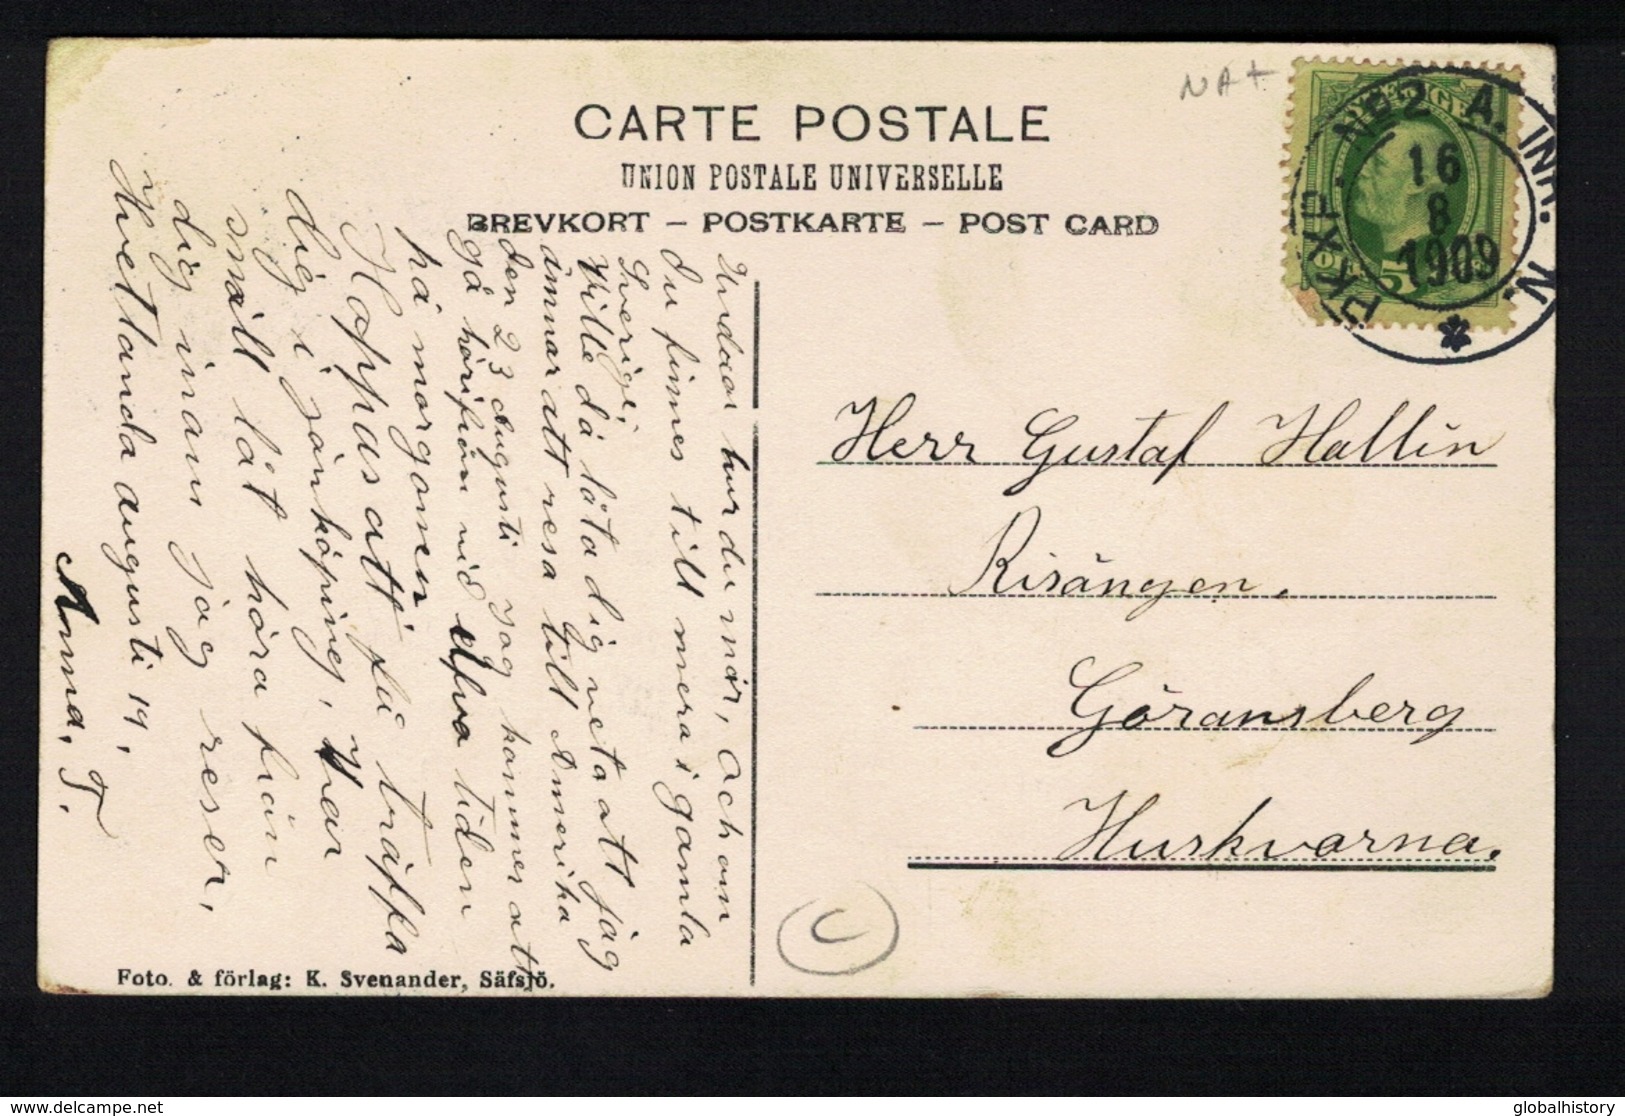 NAT
CARTE POSTALE
UNION POSTALE UNIVERSELLE
BREVKORT – POSTKARTE – POST CARD
SVERIGE
PKXP. Nº2 A. INR. N.
16
8
1909
Herr Gustaf Hallin
Risängen.
Göransberg
Huskvarna.
Undrar hur du mår, och om
du finnes till mera i gamla
Sverige,
Ville då låta dig veta att jag
ämnar att resa till Amerika
den 23 Augusti jag kommer att
gå härifrån vid tiden
på morgonen
Hoppas att få träffa
dig i jönköping, var
snäll låt höra från
dig inan jag reser,
Hvetlanda augusti 19,
Anna, T.
Foto. & förlag: K. Svenander, Säfsjö.
C
delcampe.net
globalhistory